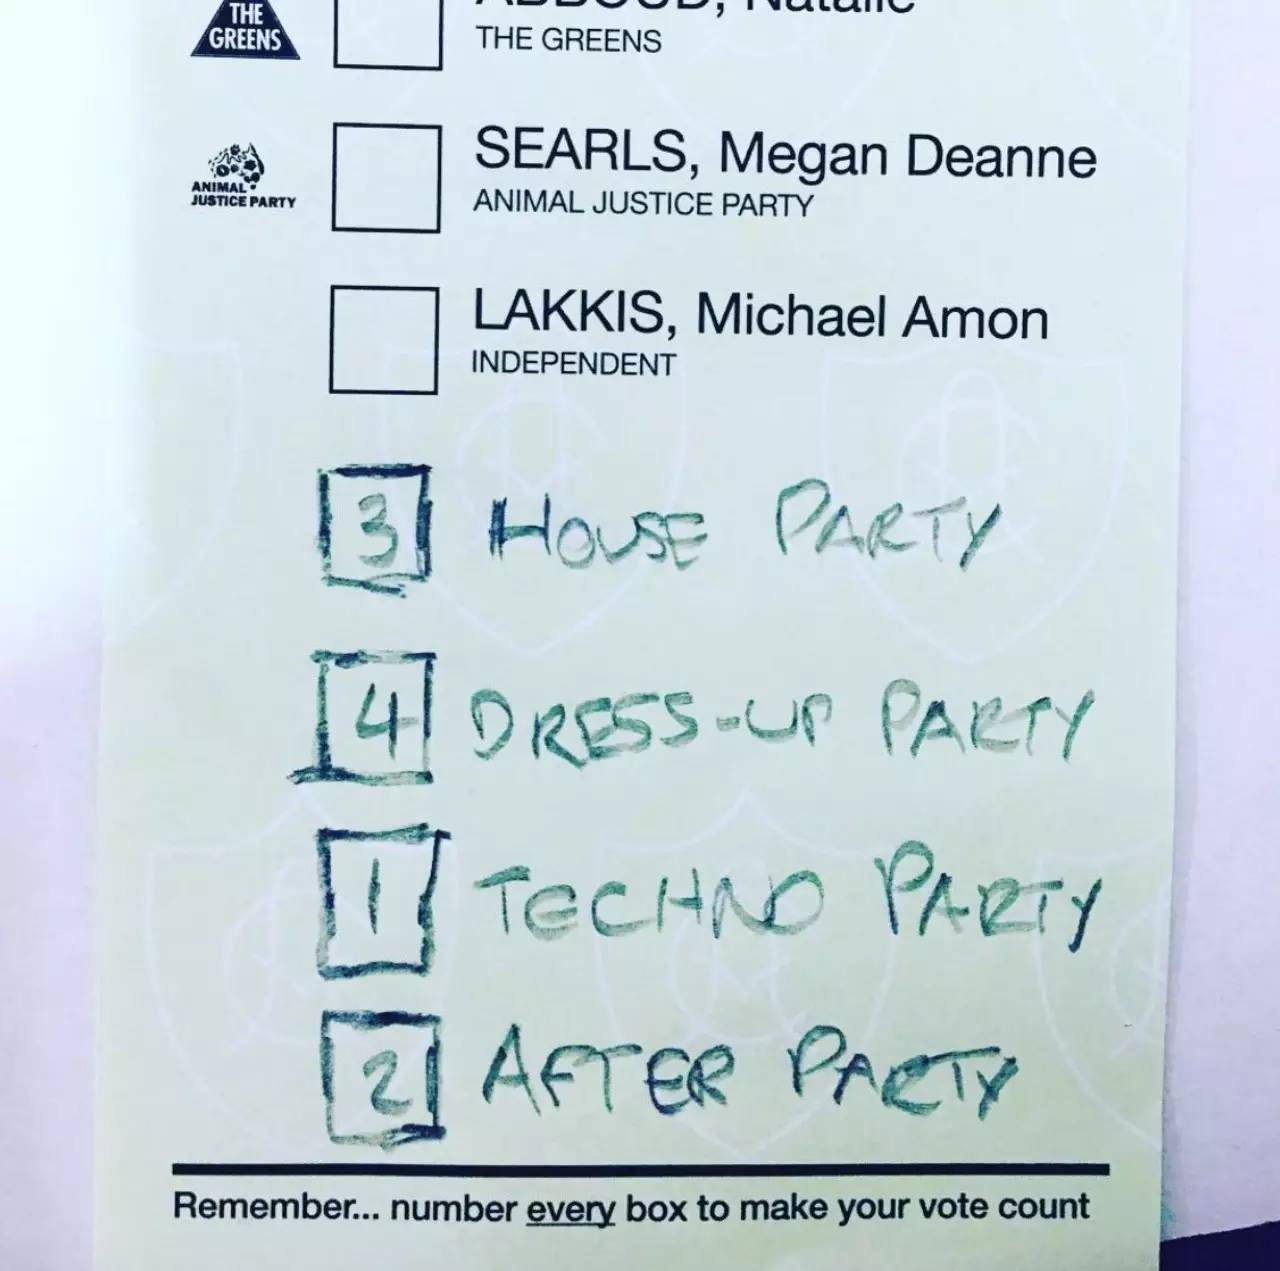 THE
GREENS
ABBOUD, Natalie
THE GREENS
ANIMAL
JUSTICE PARTY
SEARLS, Megan Deanne
ANIMAL JUSTICE PARTY
LAKKIS, Michael Amon
INDEPENDENT
3 HOUSE PARTY
4 DRESS-UP PARTY
1 TECHNO PARTY
2 AFTER PARTY
Remember... number every box to make your vote count